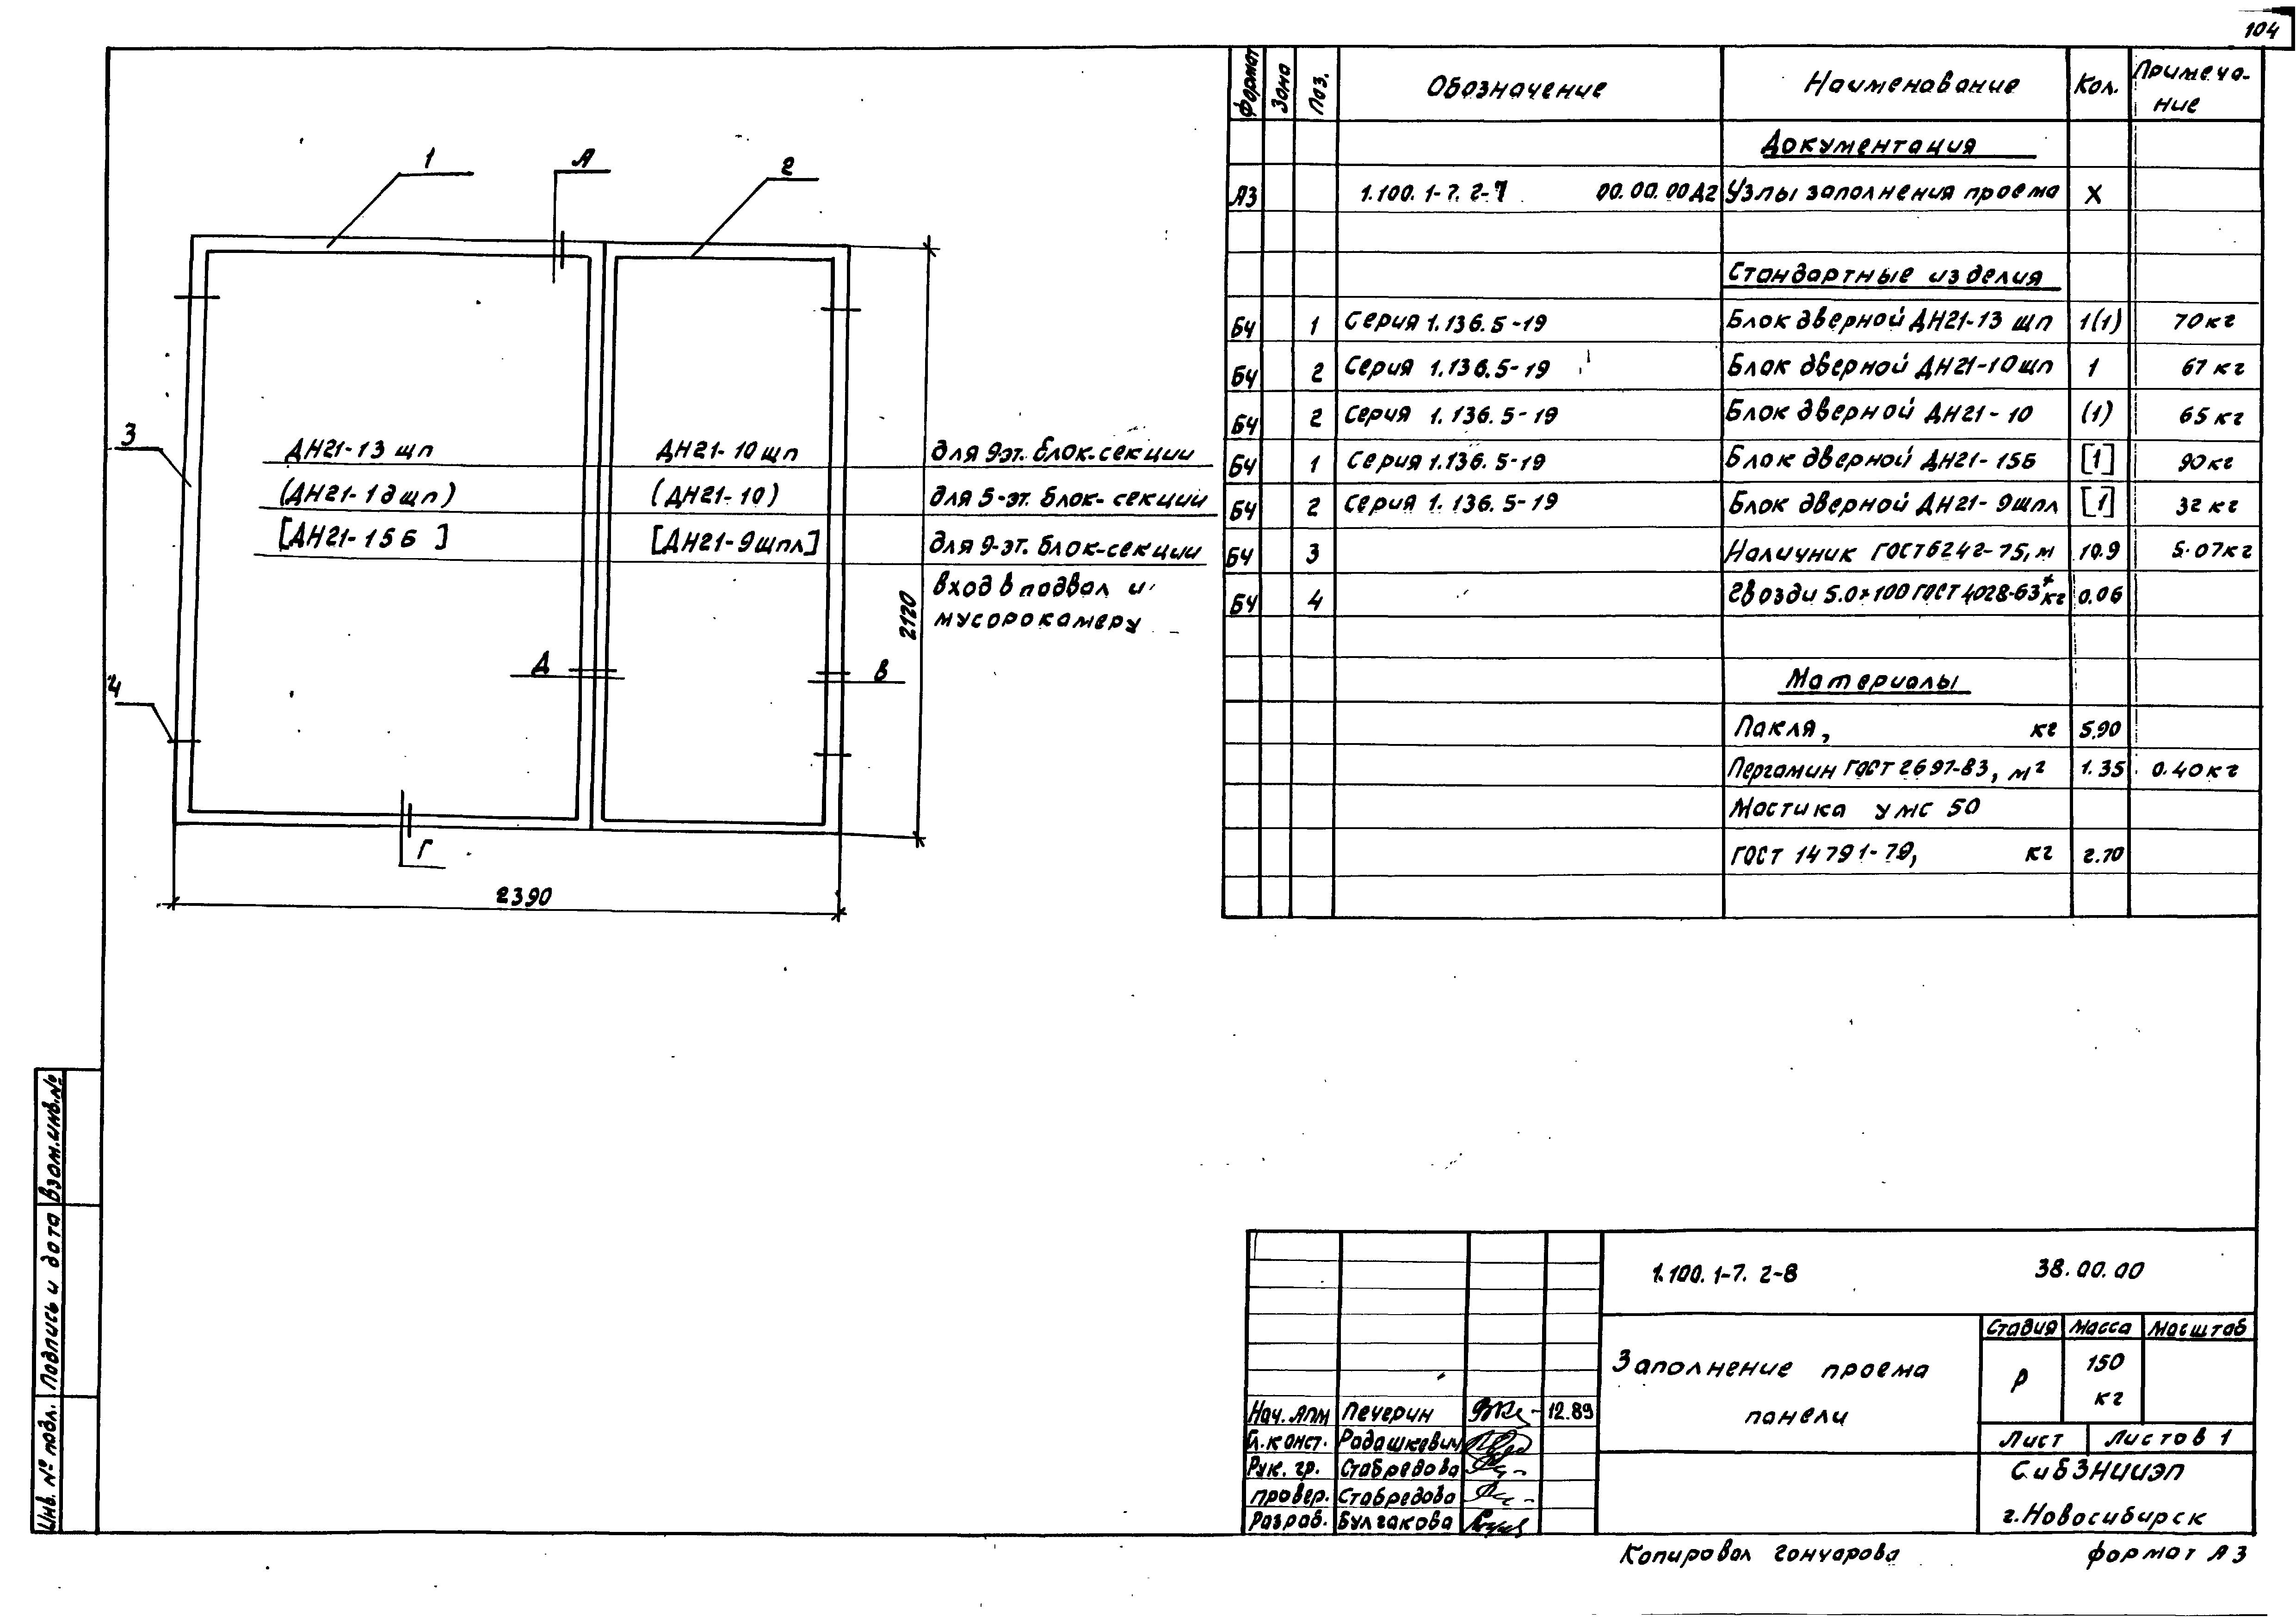 104
1
А
2
3
4
ДН21-13 щп ДН21-10 щп для 9эт. блок-секции
(ДН21-13щп) (ДН21-10) для 5-эт. блок-секции
[ДН21-15Б] [ДН21-9щпл] для 9-эт. блок-секции
вход в подвал и
мусорокамеру
2120
Д
В
Г
2390
Формат Зона Поз. Обозначение Наименование Кол. Примеча-
ние
Документация
А3 1.100.1-7. 2-7 00.00.00Д2 Узлы заполнения проема Х
Стандартные изделия
БЧ 1 Серия 1.136.5-19 Блок дверной ДН21-13 щп 1(1) 70кг
БЧ 2 Серия 1.136.5-19 Блок дверной ДН21-10щп 1 67 кг
БЧ 2 Серия 1.136.5-19 Блок дверной ДН21-10 (1) 65 кг
БЧ 1 Серия 1.136.5-19 Блок дверной ДН21-15Б [1] 90кг
БЧ 2 Серия 1.136.5-19 Блок дверной ДН21-9щпл [1] 32 кг
БЧ 3 Наличник ГОСТ6242-75, м 10.9 5.07кг
БЧ 4 Гвозди 5.0×100 ГОСТ 4028-63* кг 0.06
Материалы
Пакля, кг 5.90
Пергамин ГОСТ 2697-83, м² 1.35 0.40кг
Мастика УМС 50
ГОСТ 14791-79, кг 2.70
Взам.инв.№
Подпись и дата
Инв. № подл.
1.100.1-7. 2-8 38.00.00
Заполнение проема
панели
Стадия Масса Масштаб
Р 150
кг
Лист Листов 1
СибЗНИИЭП
г.Новосибирск
Нач. АПМ Печерин 12.89
Гл.конст. Радашкевич
Рук. гр. Стабредова
провер. Стабредова
Разраб. Булгакова
Копировал Гончарова формат А3